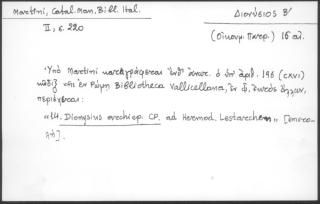 Martini, Catal. Man. Bibl. Ital.
II, σ. 220
Διονύσιος Β'
(Οἰκουμ. Πατρ.) 16 αἰ.
Ὑπὸ Martini καταγράφεται ὁ ὑπ' ἀριθ. 196 (CXVI)
κῶδιξ τῆς ἐν Ῥώμῃ Bibliotheca Vallicelliana, ἐν ᾧ, ἐκτὸς ἄλλων,
περιέχεται:
«14. Dionysius archiep. CP. ad Hermod. Lestarchem»